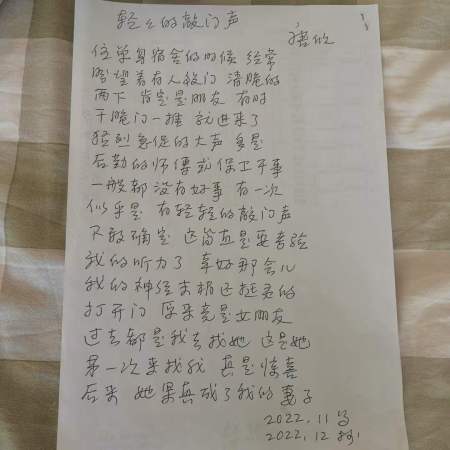 轻轻的敲门声
住单身宿舍的时候 经常
盼望着有人敲门 清脆的
两下 肯定是朋友 有时
干脆门一推 就进来了
猛烈急促的大声 多是
后勤的师傅或保卫干事
一般都没有好事 有一次
似乎是 有轻轻的敲门声
不敢确定 这简直是要考验
我的听力了 幸好那会儿
我的神经末梢还挺灵的
打开门 原来竟是女朋友
过去都是我去找她 这是她
第一次来找我 真是惊喜
后来 她果真成了我的妻子
2022.11写
2022.12